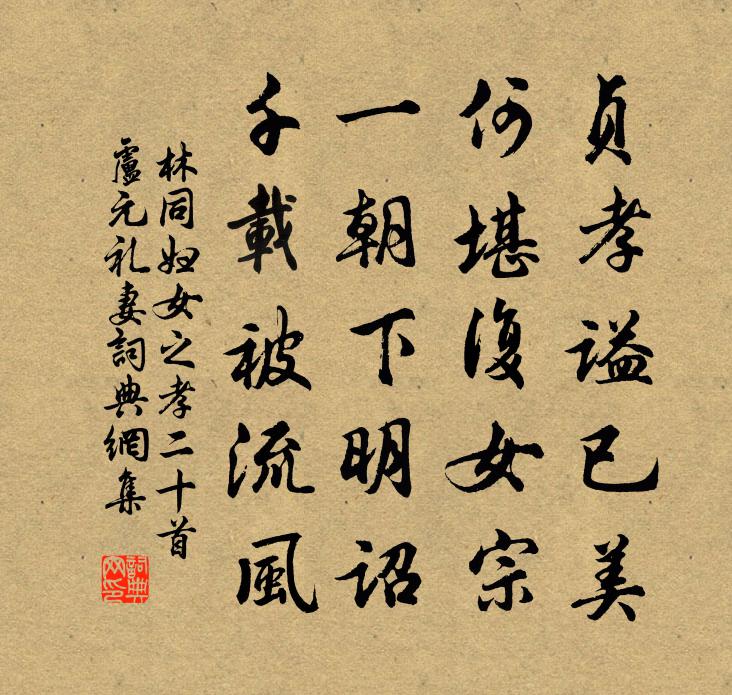 貞孝謚已美
何堪復女宗
一朝下明詔
千載被流風
林同妇女之孝二十首
盧元礼妻詞典網集
詞典网印